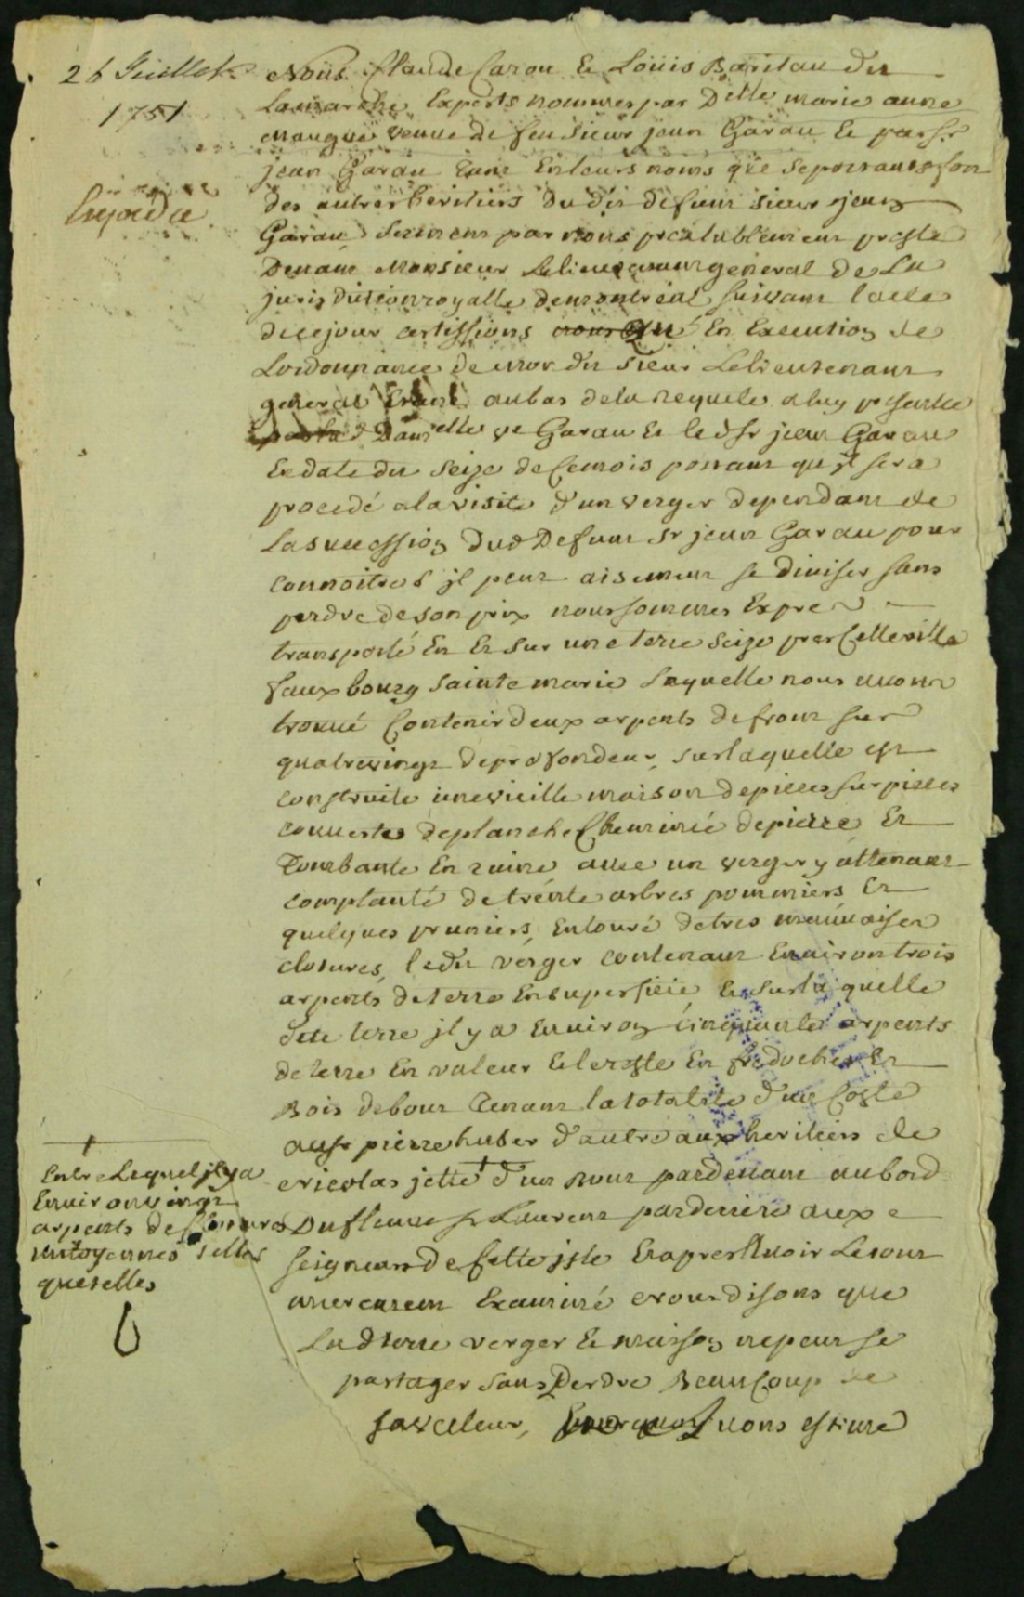 26 Juillet
1751
Expedié
Nous Claude Caron & Loüis Baritau dit
Lamarche Experts nommes par Delle marie anne
Maugüe veuve de feu sieur jean Garau & par sr
jean Garau tant En leurs noms que se portants fon
des autres heritiers du dit defunt sieur jean
Garau Serment par nous prealablement presté
Devant Monsieur Le lieutenant general de La
jurisdiction royalle de montreal suivant l'acte
de ce jour certiffions En Execution de
Lordonnance de mon dit sieur Le lieutenant
general Estant au bas de la requeste a luy presentée
d Damelle ve Garau & le d sr jean Garau
En date du seize de ce mois portant qu'il sera
procedé a la visite d'un verger dependant de
La succession dud Defunt sr jean Garau pour
connoitre s'il peut aisement se diviser sans
perdre de son prix nous sommes Expres
transporté En Et sur une terre seize pres cette ville
faux bourg sainte marie Laquelle nous avons
trouvé Contenir deux arpents de front sur
quatrevingt de profondeur, sur laquelle est
construite une vieille maison de pieces sur pieces
couvertes de planche Cheminée de pierre Et
Tombante En ruine avec un verger y attenant
complanté de trente arbres pommiers Et
quelques pruniers, Entouré de tres mauvaises
clotures, ledit verger contenant Environ trois
arpents de terre En superficie, & sur la quelle
dite terre il y a Environ cinquante arpents
de terre En valeur & le reste En fredoches Et
Bois debout Tenant la totalité d'un Costé
au sr pierre huber d'autre aux heritiers de
Nicolas jetté d'un bout par devant au bord
Du fleuve St Laurent par derriere aux
seigneurs de Cette isle Et apres avoir Le tout
murement Examiné Nous disons que
Lad terre verger & maison ne peut se
partager sans Perdre Beaucoup de
sa valeur, Pourquoy nous estime
Entre Lequel il y a
Environ vingt
arpents de Clotures
mitoyennes telles
quelles